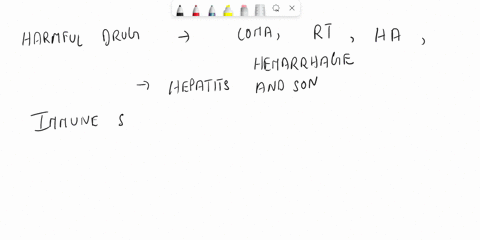 HARMFUL DRUG → COMA, RT, HA,
HEMARRHAGIE
→ HEPATITS AND SON
IMMUNE S